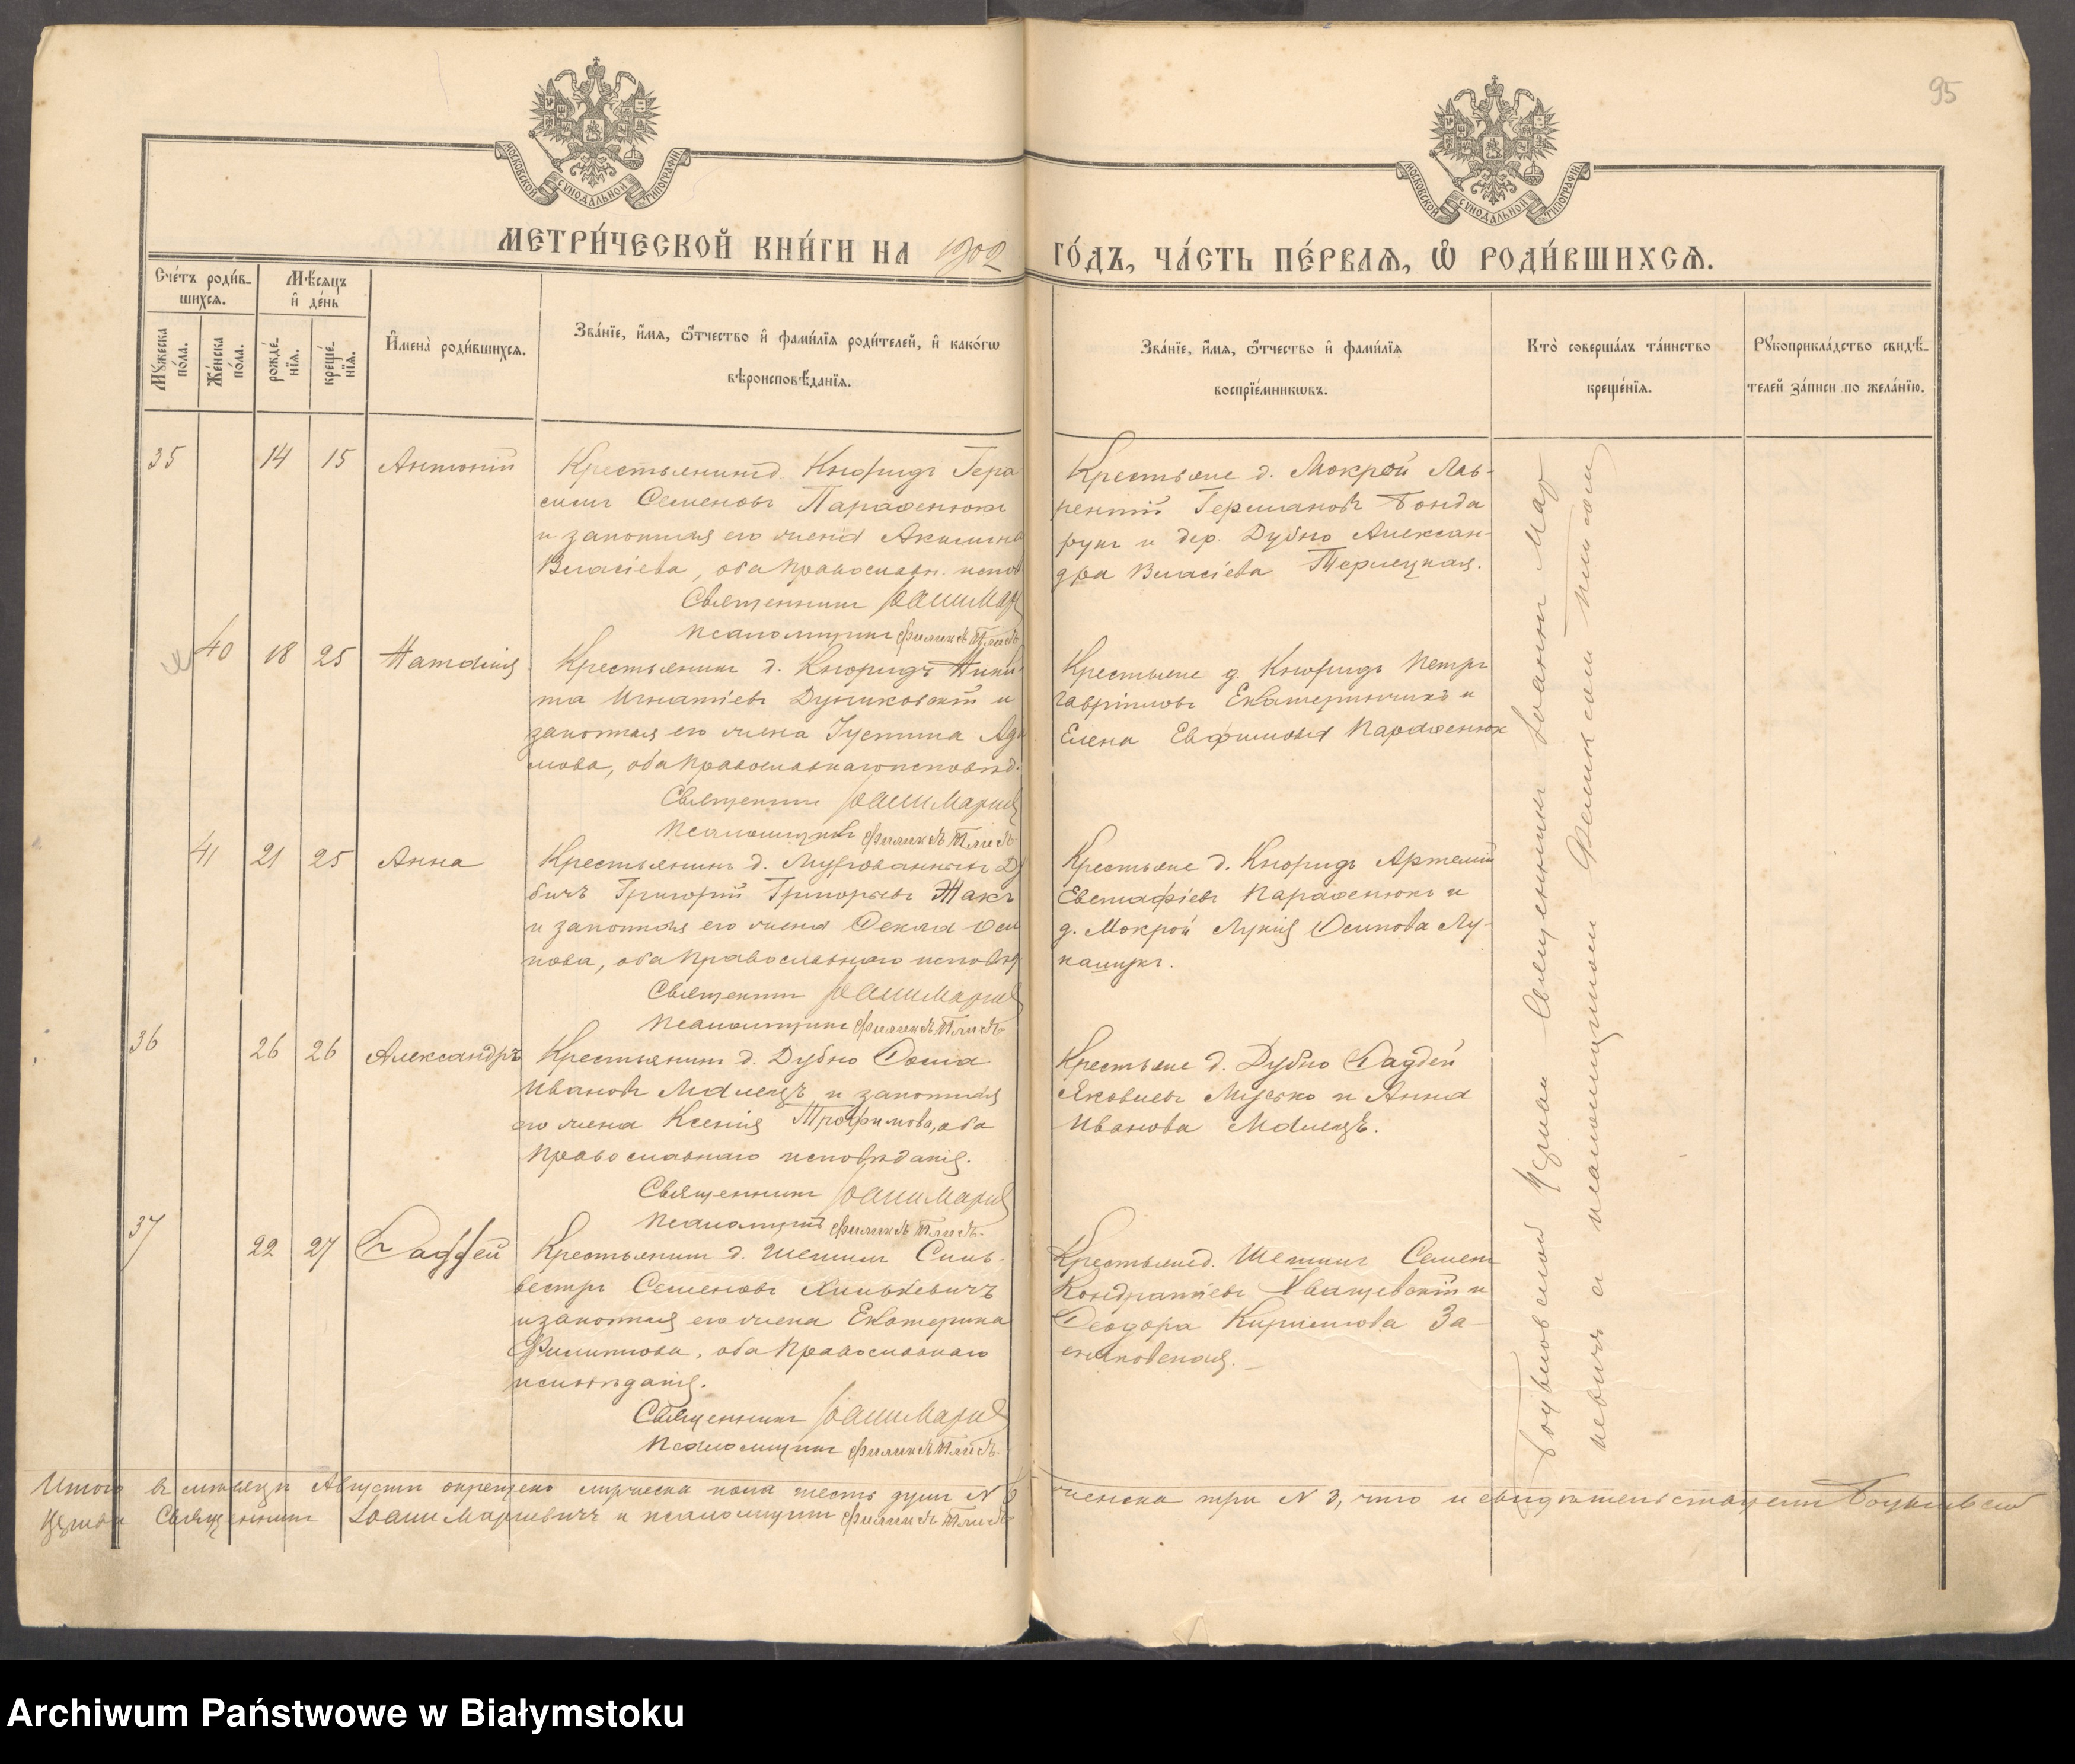 95
МОСКОВСКОЙ СѴНОДАЛЬНОЙ ТИПОГРАФІИ
МОСКОВСКОЙ СѴНОДАЛЬНОЙ ТИПОГРАФІИ
МЕТРИ́ЧЕСКОЙ КНИ́ГИ НА 1902 ГО́ДЪ, ЧА́СТЬ ПЕ́РВАѦ, Ѽ РОДИ́ВШИХСѦ.
Сче́тъ роди́вшихсѧ.
Мꙋжеска по́ла.
Же́нска по́ла.
Мѣ́сѧцъ и҆ де́нь
рожде́нїѧ.
креще́нїѧ.
И҆мена̀ роди́вшихсѧ.
Зва́нїе, и҆́мѧ, ѻ҆́тчество и҆ фами́лїѧ роди́телей, и҆ како́гѡ
вѣроисповѣ́данїѧ.
Зва́нїе, и҆́мѧ, ѻ҆́тчество и҆ фами́лїѧ
воспрїе́мникѡвъ.
Кто̀ соверша́лъ та́инство
креще́нїѧ.
Рꙋкоприкла́дство свидѣ́-
телей за́писи по жела́нїю.
35 14 15 Антоній
Крестьянинъ д. Кнюридъ Гера
симъ Семеновъ Парфенюкъ
и законная его жена Акилина
Власіева, оба православн. испов
Священникъ Іоаннъ Мар
Псаломщикъ
Крестьяне д. Мокрой Лав-
рентій Германовъ Бонда
рукъ и дер. Дубно Алексан-
дра Власіева Терлецкая.
40 18 25 Наталія
Крестьянинъ д. Кнюридъ Ники
та Игнатіевъ и
законная его жена Іустина Ада
мова, оба православнаго исповѣд.
Священникъ Іоаннъ Марц
Псаломщикъ
Крестьяне д. Кнюридъ Петръ
Гавріиловъ и
Елена Евфимовна Парфенюк
41 21 25 Анна
Крестьянинъ д. Ду
бичъ Григорій Григорьевъ Жакъ
и законная его жена Ѳекла Оси
пова, оба православнаго исповѣд
Священникъ Іоаннъ Марц
Псаломщикъ
Крестьяне д. Кнюридъ Артемій
Евстафіевъ Парфенюкъ и
д. Мокрой Лукія Осипова Лу-
кашукъ.
36 26 26 Александръ
Крестьянинъ д. Дубно Ѳома
Ивановъ Малецъ и законная
его жена Ксенія Трофимова, оба
православнаго исповѣданія.
Священникъ Іоаннъ Марц
Псаломщикъ
Крестьяне д. Дубно Ѳаддей
Яковлевъ и Анна
Иванова Малецъ.
37 22 27 Ѳаддей
Крестьянинъ д. Силь-
вестръ Семеновъ Хилькевичъ
и законная его жена Екатерина
Филиппова, оба православнаго
исповѣданія.
Священникъ Іоаннъ Марц
Псаломщикъ
Крестьяне д. Семенъ
Кондратіевъ и
Ѳеодора Кириллова За-

церкви Священникъ Іоаннъ Мар
цевичъ а псаломщикомъ
Итого въ мѣсяцѣ Августѣ окрещено мужеска пола шесть душъ N 6 женска три N 3, что и свидѣтельствуемъ
церкви Священникъ Іоаннъ Марцевичъ и псаломщикъ
Archiwum Państwowe w Białymstoku